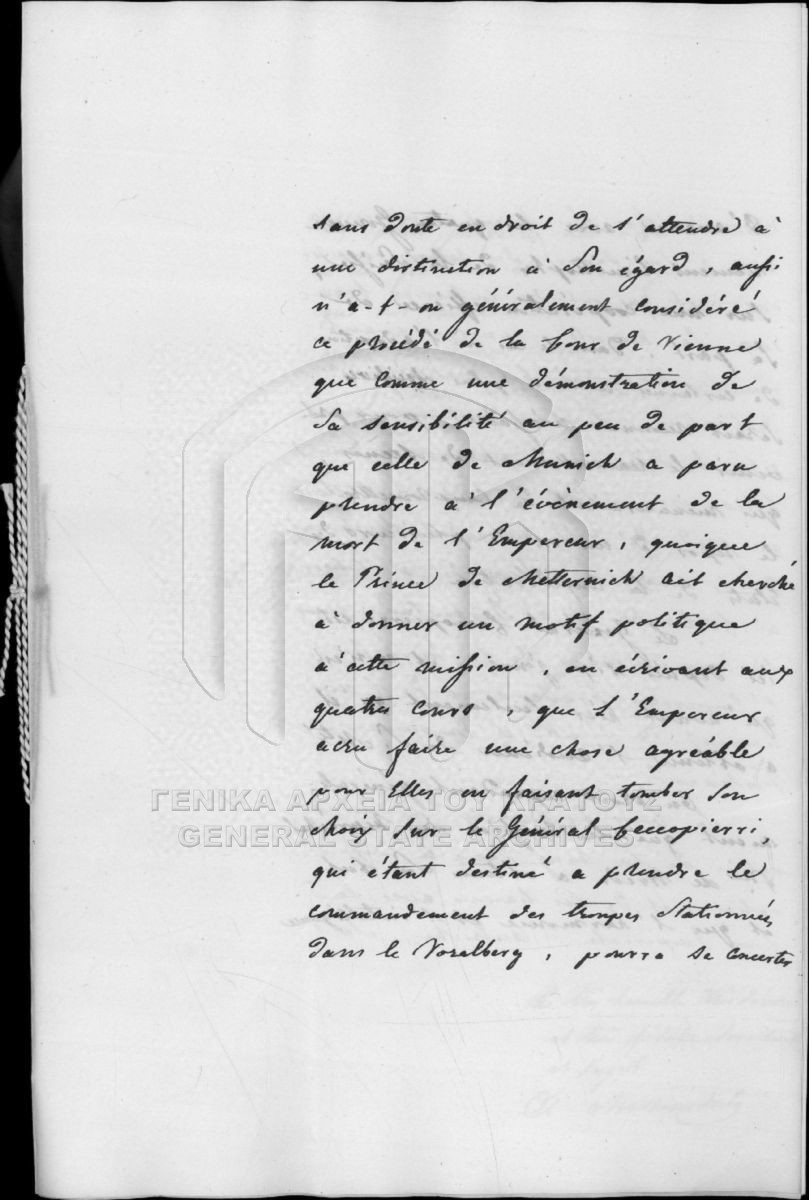 sans doute en droit de s'attendre à
une distinction à Son égard, aussi
n'a-t-on généralement considéré
ce procédé de la Cour de Vienne
que comme une démonstration de
Sa sensibilité au peu de part
que celle de Munich a paru
prendre à l'évènement de la
mort de l'Empereur, quoique
le Prince de Metternich ait cherché
à donner un motif politique
à cette mission, en écrivant aux
quatre Cours, que l'Empereur
a cru faire une chose agréable
pour Elles en faisant tomber Son
choix sur le Général Ceccopierri,
qui étant destiné a prendre le
commandement des troupes Stationnées
dans le Voralberg, pourra se concerter
ΓΕΝΙΚΑ ΑΡΧΕΙΑ ΤΟΥ ΚΡΑΤΟΥΣ
GENERAL STATE ARCHIVES